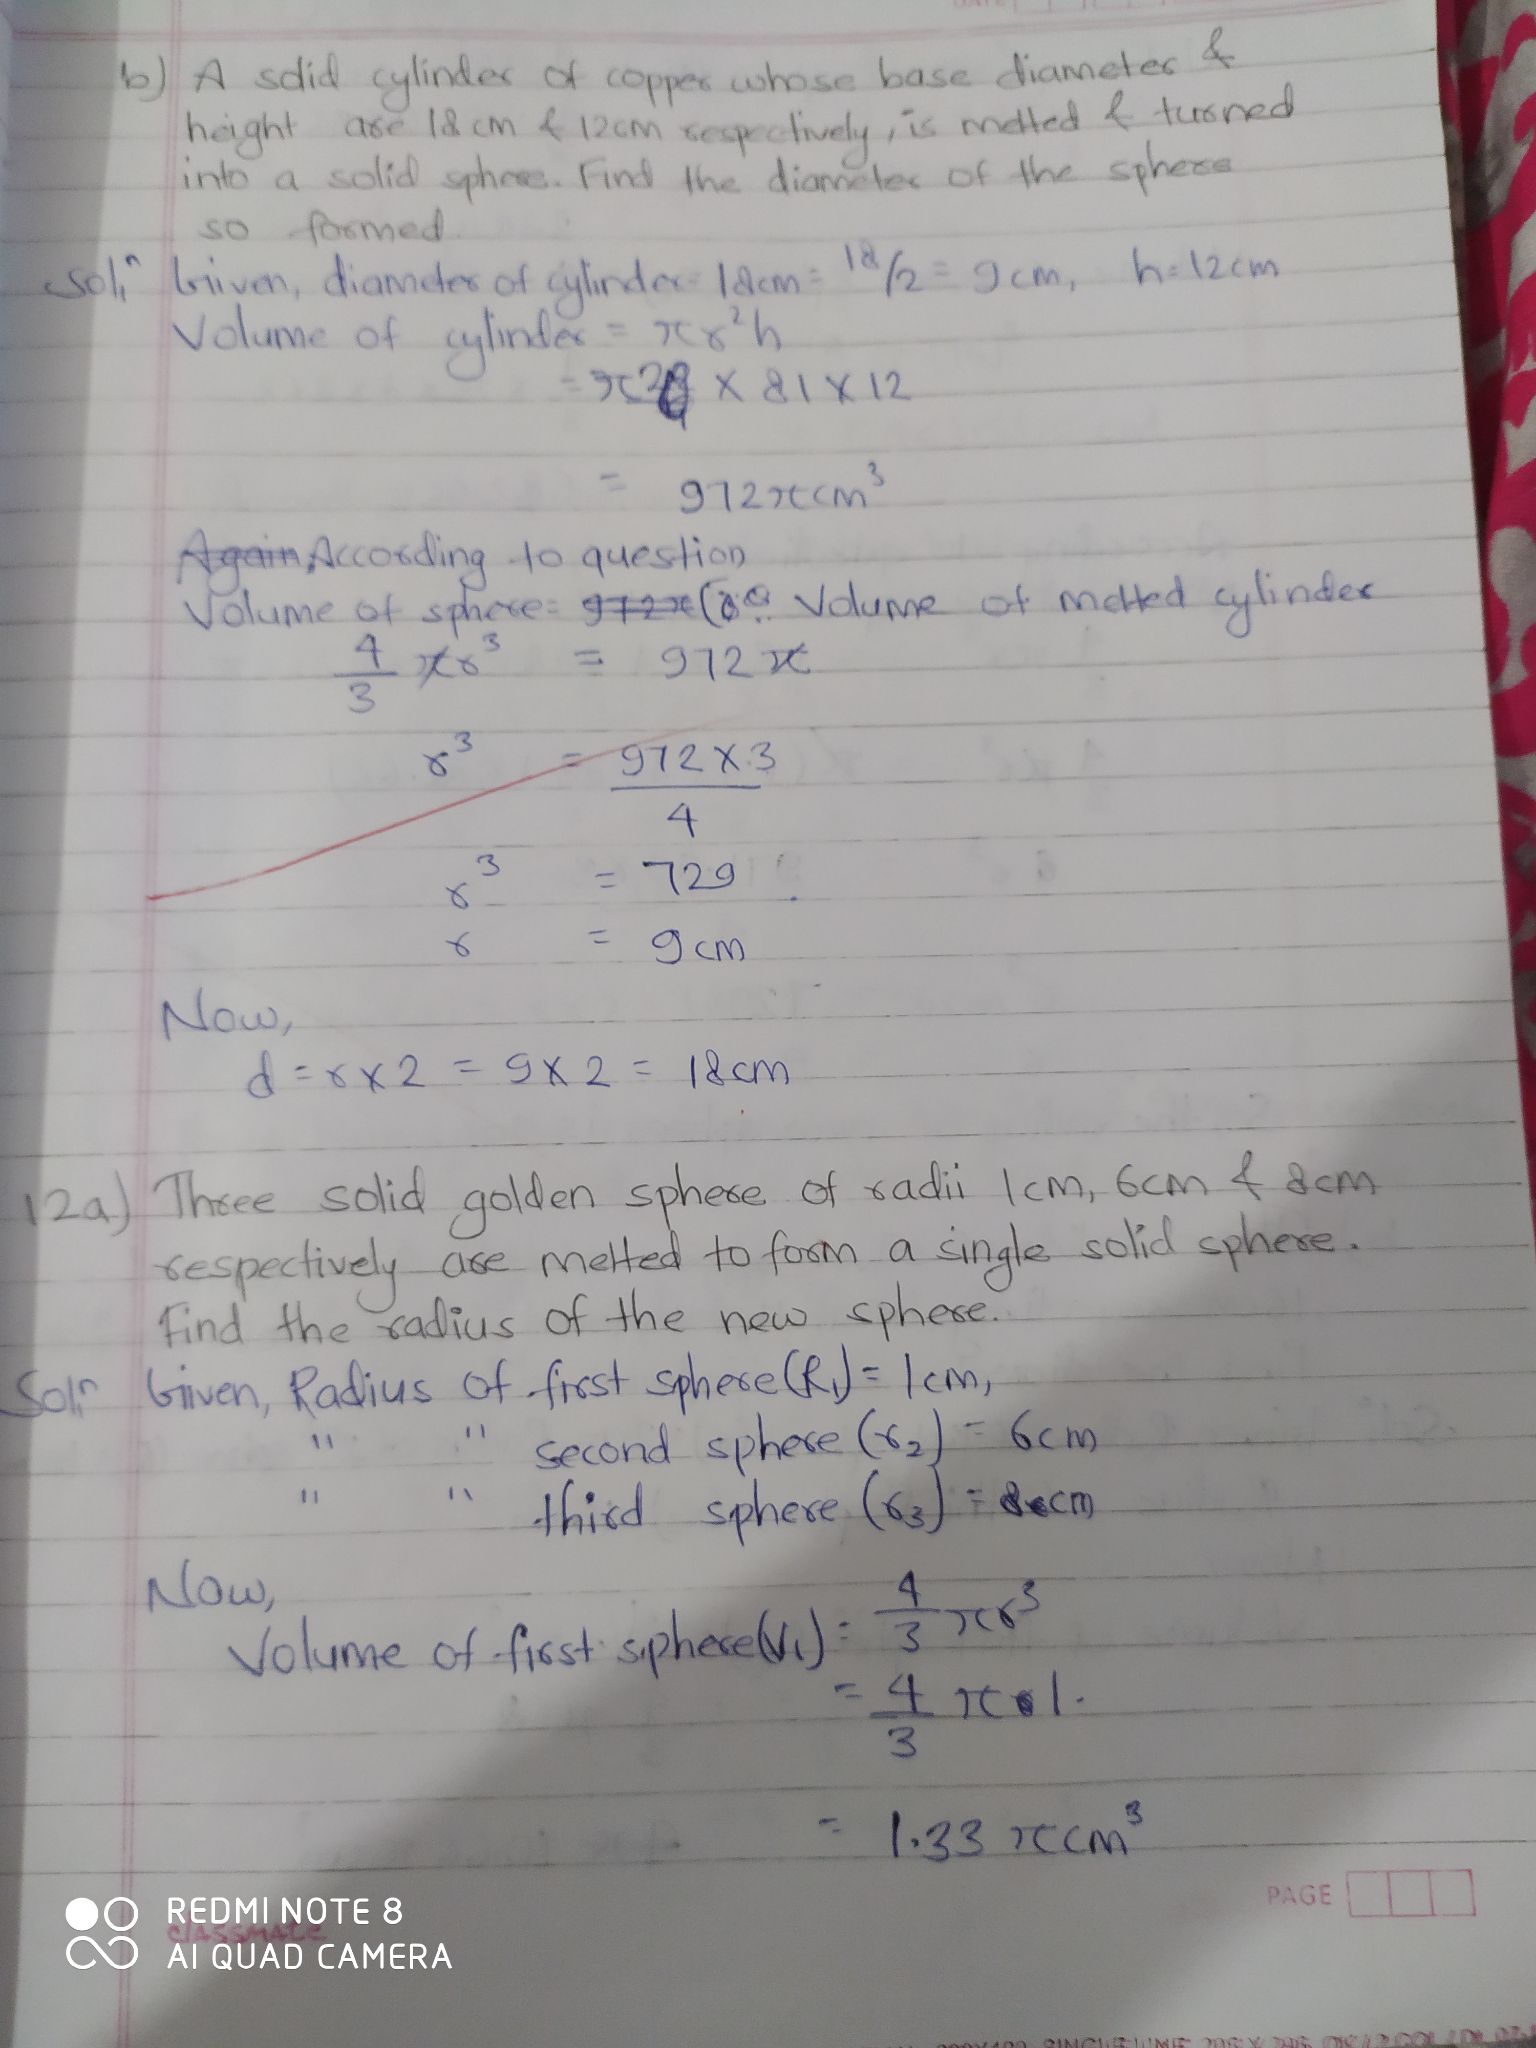 b) A solid cylinder of copper whose base diameter &
height are 18 cm & 12cm respectively, is melted & turned
into a solid sphere. Find the diameter of the sphere
so formed
Solⁿ Given, diameter of cylinder = 18cm = 18/2 = 9cm, h=12cm
Volume of cylinder = πr²h
= π × 81 × 12
= 972πcm³
Again, According to question
Volume of sphere = 972π Volume of melted cylinder
4/3 πr³ = 972π
r³ = 972×3/4
r³ = 729
r = 9cm
Now,
d = r×2 = 9×2 = 18cm
12a) Three solid golden sphere of radii 1cm, 6cm & 8cm
respectively are melted to form a single solid sphere.
Find the radius of the new sphere.
Solⁿ Given, Radius of first sphere (R₁) = 1cm,
" " second sphere (r₂) = 6cm
" " third sphere (r₃) = 8cm
Now,
Volume of first sphere (V₁) = 4/3 πr³
= 4/3 π 1.
= 1.33 πcm³
PAGE
REDMI NOTE 8
classmate
AI QUAD CAMERA